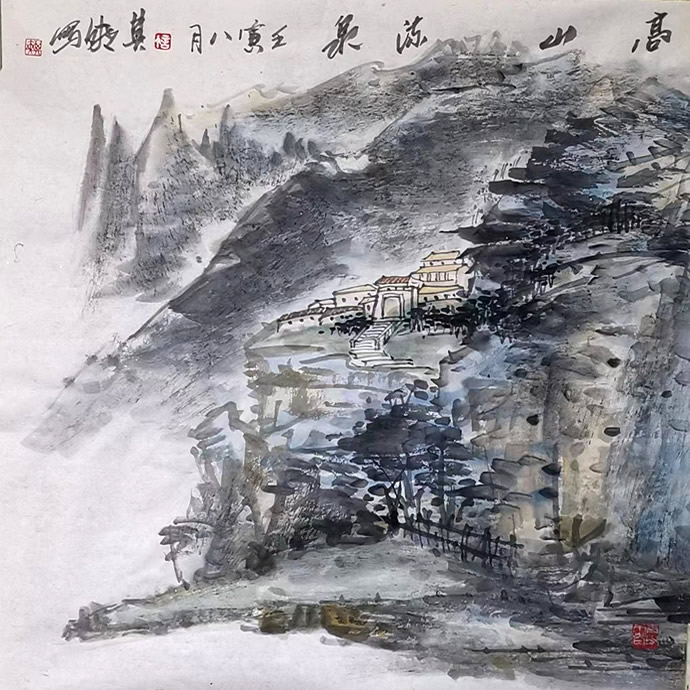 高山流泉 壬寅八月 写